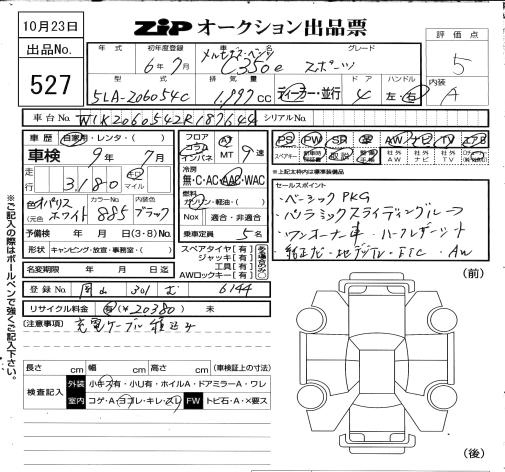 10月23日
ZIPオークション出品票
評価点
出品No.
527
年式
初年度登録
車名
グレード
6年7月
メルセデス・ベンツ
C350e
スポーツ
5
型式
排気量
ドア
ハンドル
内装
5LA-206054C
1,997cc
ディーラー・並行
4
左・右
A
車台No.
W1K2060542R187649
シリアルNo.
車歴
自家用・レンタ・( )
フロア
コラム
インパネ
AT
MT
9速
PS
PW
SR
革
AW
ナビ
TV
エアB
車検
9年7月
スペアキー
取説
社外AW
社外ナビ
社外TV
走行
3180
キロ
マイル
冷房
無・C・AC・AAC・WAC
※上記太枠内は標準装備品
燃料
ガソリン・軽油・( )
セールスポイント
色
(元色
ホワイト
カラーNo.
885
内装色
ブラック
Nox
適合・非適合
・ベーシックPKG
・パノラミックスライディングルーフ
予備検
年月日(3・8)No.
乗車定員
5名
・ワンオーナー車
形状
キャンピング・放宣・事務室・( )
スペアタイヤ[有]
ジャッキ[有]
工具[有]
AWロックキー[有]
・純正ナビ・地デジTV・ETC・AW
名変期限
年月日迄
登録No.
岡山
301
む
6144
(前)
リサイクル料金
有(¥20380)
未
(注意事項)
充電ケーブル積込み
長さcm
幅cm
高さcm
(車検証上の寸法)
検査記入
外装
小キズ有・小U有・ホイルA・ドアミラーA・ワレ
室内
コゲ・A・ヨゴレ・キレ・スレ
FW
トビ石・A・×要ス
(後)
※ご記入の際はボールペンで強くご記入下さい。